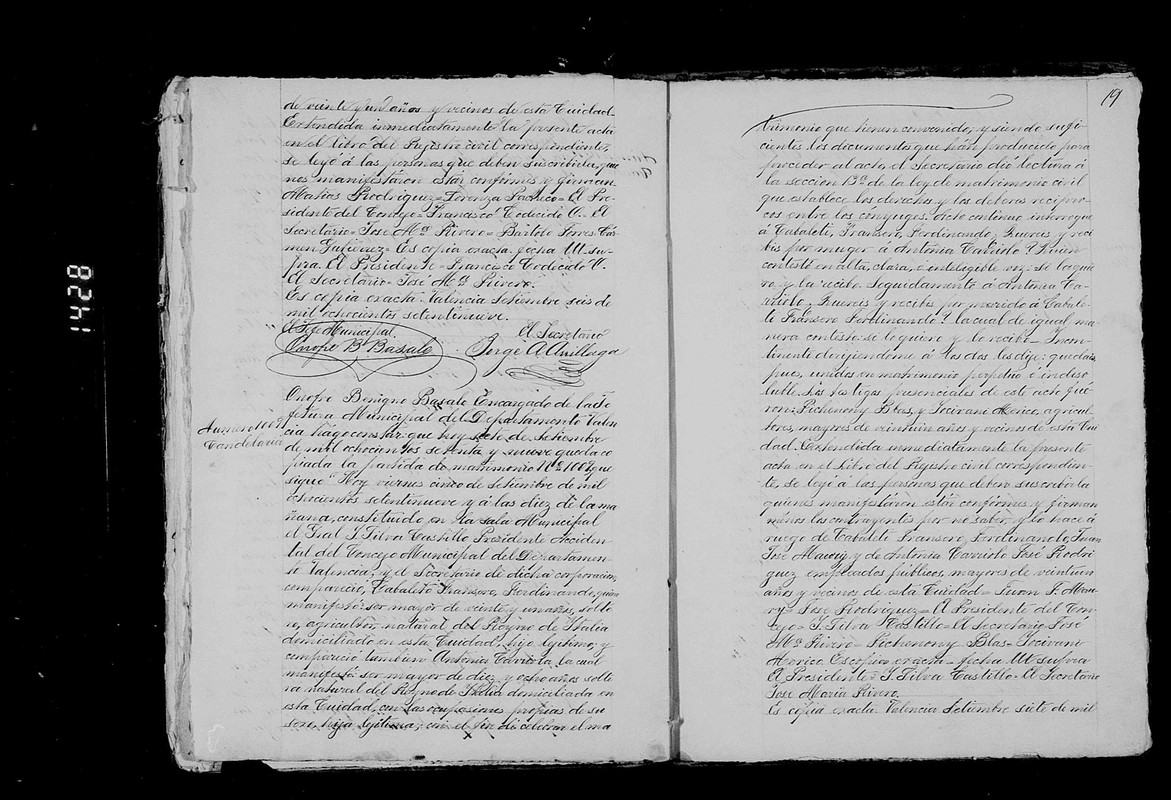 de veinte y un años y vecinos de esta Ciudad.
Extendida inmediatamente la presente acta
en el libro del Registro civil correspondiente,
se leyó á las personas que deben suscribirla, que
nos manifestaron estar conformes y firman
Matias Rodriguez = Lorenza Pacheco = El Pre-
sidente del Concejo = Francisco Codecido U. El
secretario = José Mª Rivero = Bartolo Torres = Cár-
men Gutierrez = Es copia exacta. fecha Ut su-
pra. El Presidente = Francisco Codecido U.
El secretario = José Mª Rivero.
Es copia exacta. Valencia Setiembre seis de
mil ochocientos setentinueve.
El Jefe Municipal
Onofre B Basalo
El Secretario
Jorge A
Numero 1001
Candelaria
Onofre Benigno Basalo Encargado de la Je
fetura Municipal del Departamento Valen
cia hago constar que hoy siete de Setiembre
de mil ochocientos setenta y nueve queda co
piada la partida de matrimonio Nº 1001 que
sigue "Hoy viernes cinco de Setiembre de mil
ochocientos setentinueve y á las diez de la ma
ñana, constituido en la sala Municipal
el Gral S. Silva Castillo Presidente Acciden
tal del Concejo Municipal del Departamen-
to Valencia, y el Secretario de dicha corporacion,
compareció, Cabaleto Fransero Ferdinando, quien
manifestó: ser mayor de veinte y un años, solte
ro, agricultor, natural del Reyno de Italia
domiciliado en esta Ciudad, hijo legítimo; y
compareció tambien Antonia Carriolo, la cual
manifestó: ser mayor de diez y ocho años solte
ra natural del Reyno de Italia domiciliada en
esta Ciudad, con las ocupaciones propias de su
sexo, hija legitima; con el fin de celebrar el ma
19
trimonio que tienen convenido, y siendo sufi-
cientes los documentos que han producido para
proceder al acto, el Secretario dió lectura á
la seccion 13ª de la ley de matrimonio civil
que establece los derechos y los deberes recípro-
cos entre los conyuges. Acto continuo interrogué
á Cabaleti, Fransero, Ferdinando ¿Quereis y reci
bis por muger á Antonia Carriolo? Quien
contestó en alta, clara, é inteligible voz: se la quie
ro, y la recibo. Seguidamente á Antonia Ca-
rriolo, ¿Quereis y recibis por marido á Cabale-
ti Fransero Ferdinando? la cual de igual ma
nera contestó: se lo quiero y lo recibo. Incon-
tinente dirijiéndome á los dos les dije: quedais,
pues, unidos en matrimonio perpetuo é indiso
luble. Los testigos presenciales de este acto fué
ron: Pichenony Blas, y Socivani Merico, agricul-
tores, mayores de veintiun años y vecinos de esta Ciu
dad. Extendida inmediatamente la presente
acta en el libro del Registro civil correspondien-
te, se leyó á las personas que deben suscribirla
quienes manifestaron estar conformes y firman
ménos los contrayentes por no saber, y lo hace á
ruego de Cabaleti Fransero, Ferdinando, Juan
José y de Antonia Carriolo José Rodri
guez empleados públicos, mayores de veintiun
años y vecinos de esta Ciudad = Juan J.
= José Rodriguez = El Presidente del Con-
cejo = S. Silva Castillo = El Secretario José
Mª Rivero = Pichenony Blas = Socivani
Merico Es copia exacta = fecha Ut supra
El Presidente = S. Silva Castillo = El Secretario
José Maria Rivero.
Es copia exacta. Valencia Setiembre siete de mil
1428